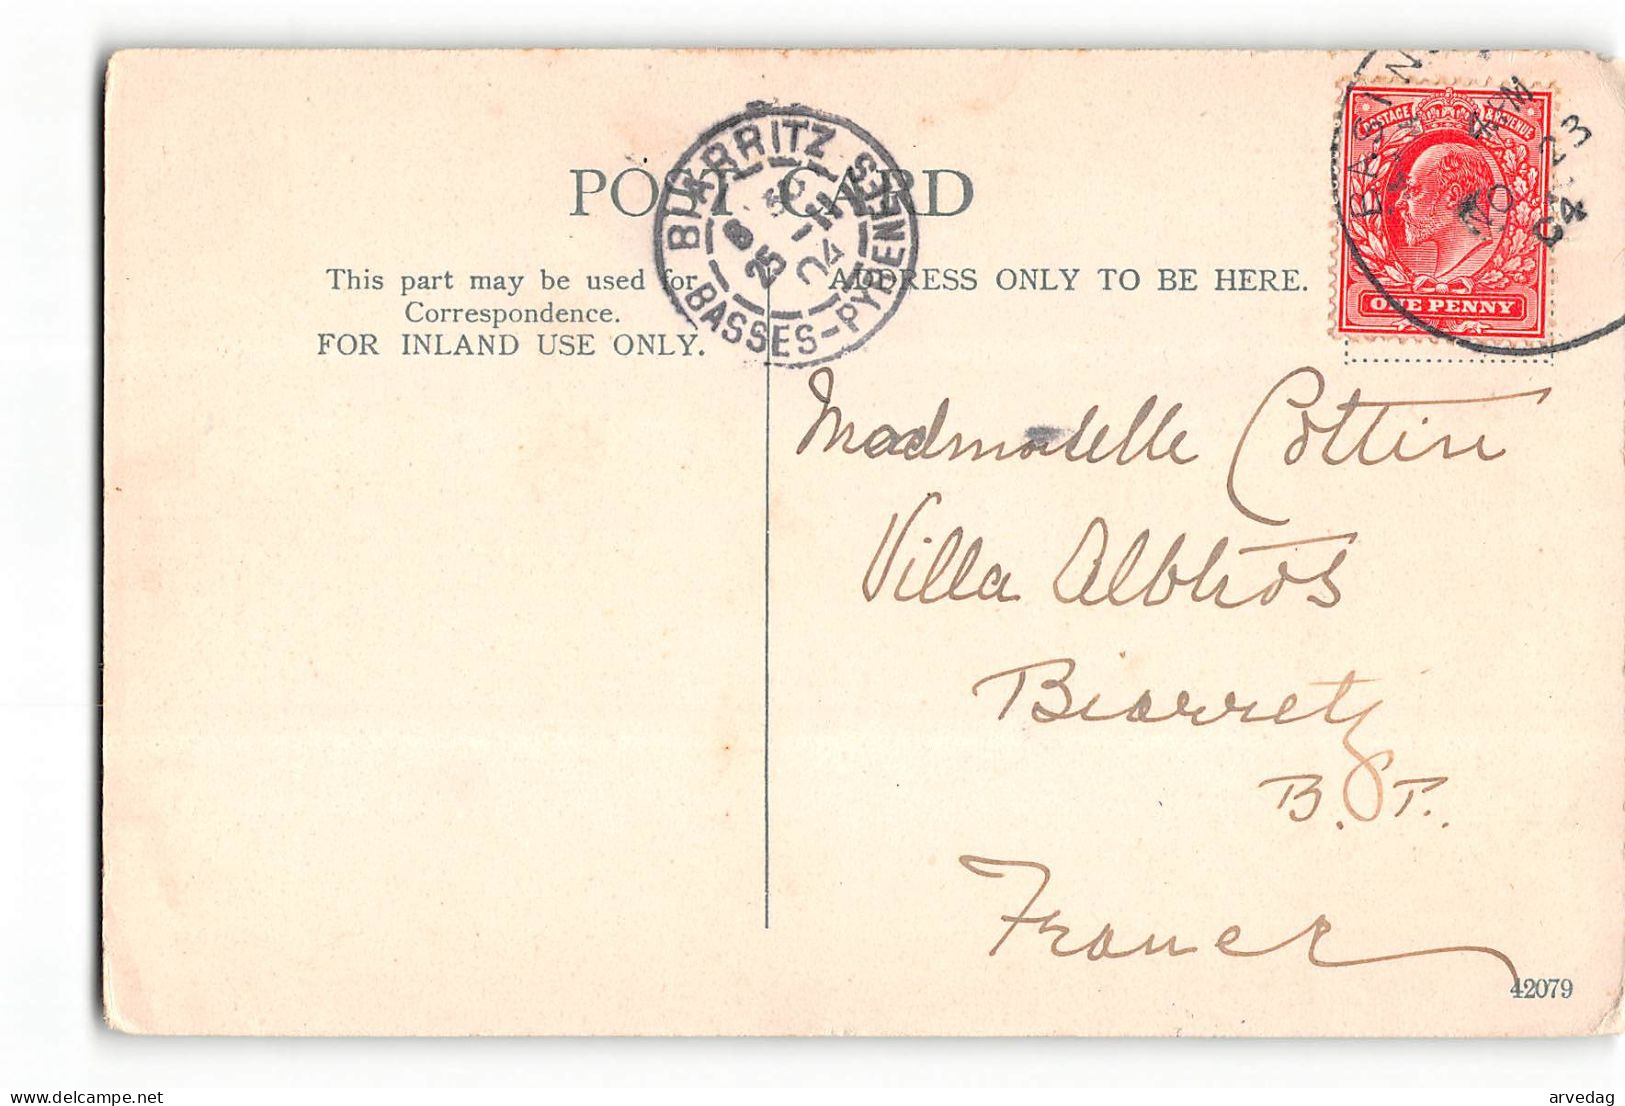 POST CARD
This part may be used for
Correspondence.
FOR INLAND USE ONLY.
ADDRESS ONLY TO BE HERE.
BIARRITZ
BASSES-PYRENEES
25 -11
04
POSTAGE & REVENUE
ONE PENNY
NO 23
04
Madmoiselle Cottin
Villa Albtros
Biarretz
B. P.
France
42079
delcampe.net
arvedag